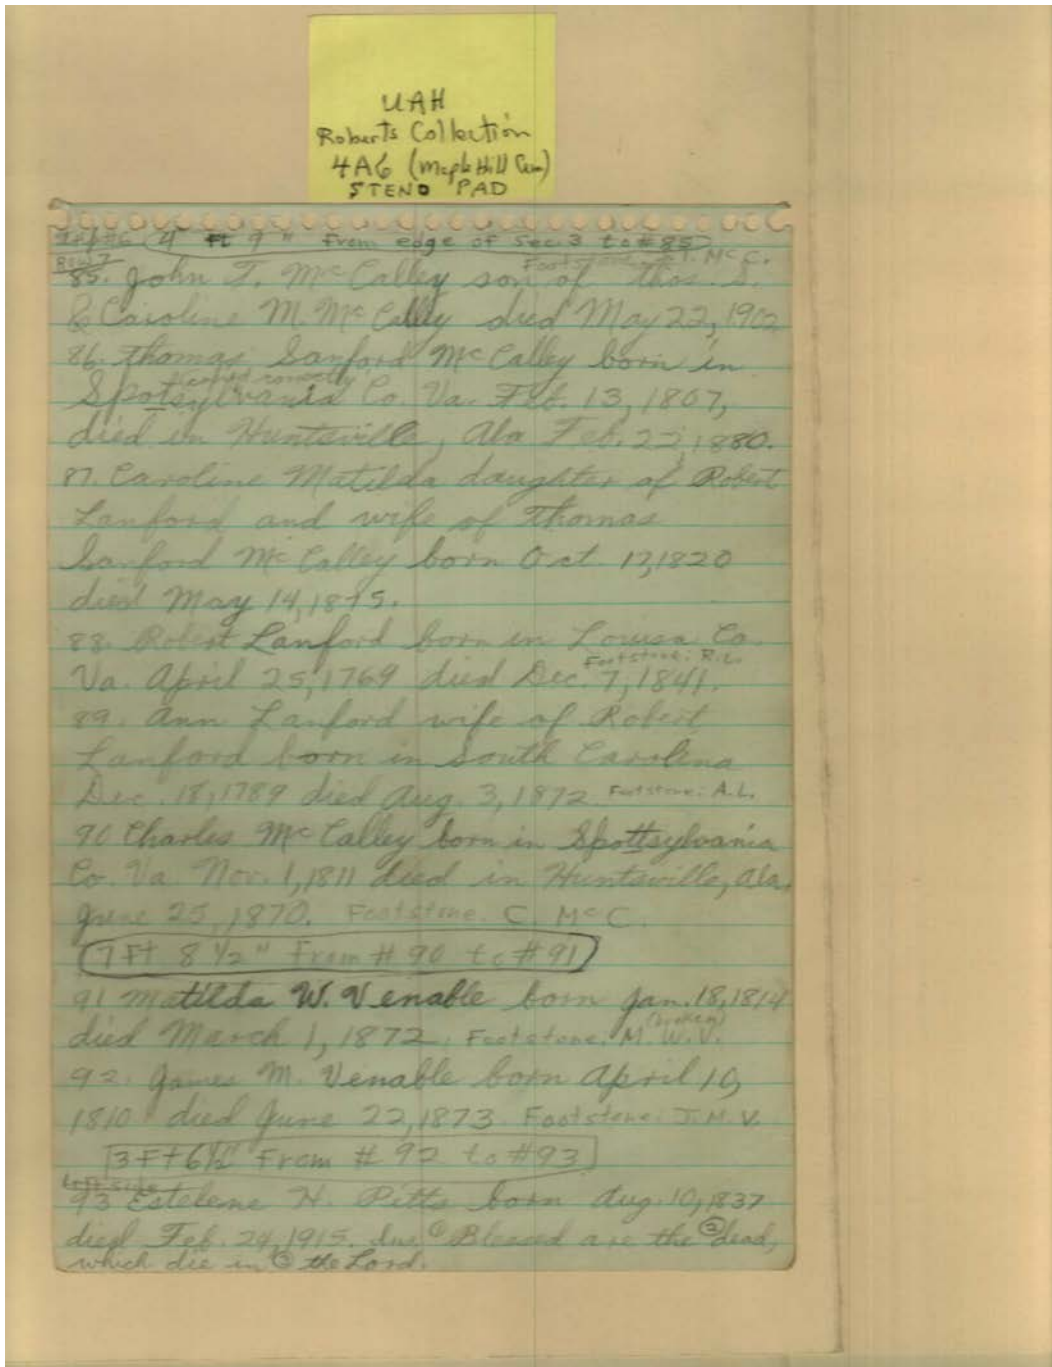 UAH
Roberts Collection
4A6 (Maple Hill Cem)
STENO PAD
4 Ft 9" From edge of Sec. 3 to #85
Row 7 Footstone: J. T. McC.
85. John T. McCalley son of Thos. S.
& Caroline M. McCalley died May 22, 1902
86. Thomas Sanford McCalley born in
copied correctly
Spotsylvania Co. Va. Feb. 13, 1807,
died in Huntsville, Ala Feb. 22, 1880.
87. Caroline Matilda daughter of Robert
Lanford and wife of Thomas
Sanford McCalley born Oct 17, 1820
died May 14, 1875.
88. Robert Lanford born in Louisa Co.
Footstone: R.L.
Va. April 25, 1769 died Dec. 7, 1841.
89. Ann Lanford wife of Robert
Lanford born in South Carolina
Dec. 18, 1789 died Aug. 3, 1872 Footstone: A.L.
90 Charles McCalley born in Spottsylvania
Co. Va Nov. 1, 1811 died in Huntsville, Ala.
June 25, 1870. Footstone. C. McC.
7 Ft 8 1/2" From # 90 to # 91
91 Matilda W. Venable born Jan. 18, 1814
(broken)
died March 1, 1872. Footstone. M.W.V.
92. James M. Venable born April 10,
1810 died June 22, 1873 Footstone: J.M.V.
3 Ft 6 1/2" From # 92 to #93
Left side
93 Estelene H. Pitts born Aug. 10, 1837
died Feb. 24, 1915. ins ① Blessed are the ② dead,
which die in ③ the Lord.